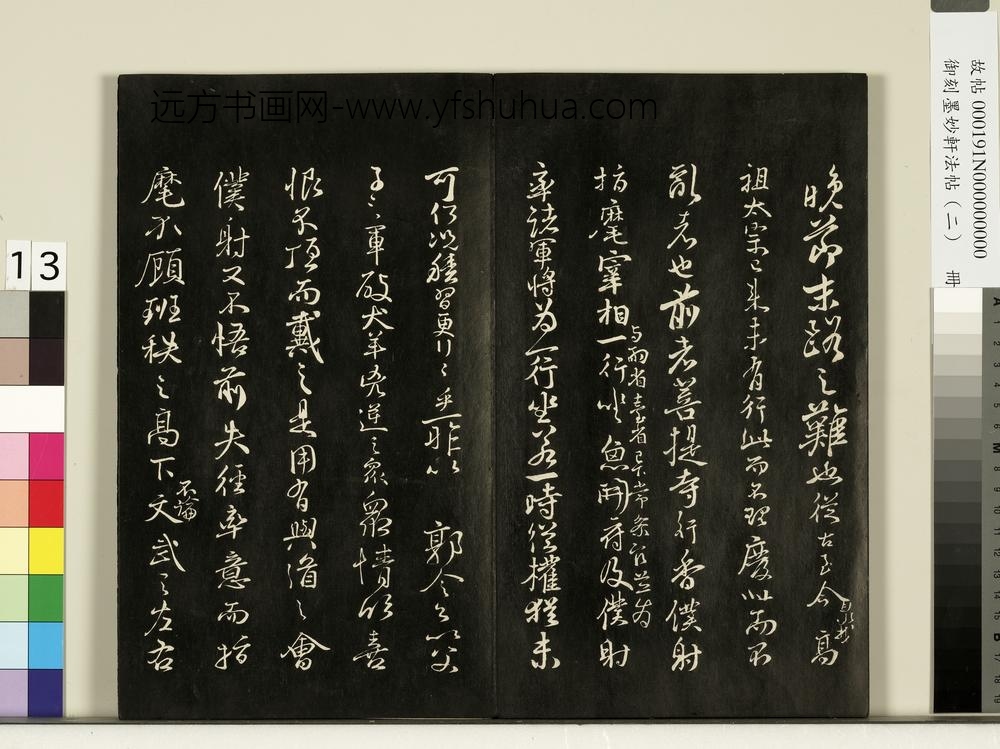 远方书画网-www.yfshuhua.com
故帖 000191N000000000
御刻墨妙軒法帖（二） 冊
13
晚節末路之難也從古至今自我高
祖太宗已來未有行此而不理廢此而不
亂者也前者菩提寺行香僕射
指麾宰相与两省臺省已下常参官並为一行坐魚開府及僕射
率諸軍將为一行坐若一時從權猶未
可何況積習更行之乎一昨以郭令公以父
子之軍破犬羊凶逆之眾眾情欣喜
恨不頂而戴之是用有興道之會
僕射又不悟前失徑率意而指
麾不顧班秩之高下不論文武之左右